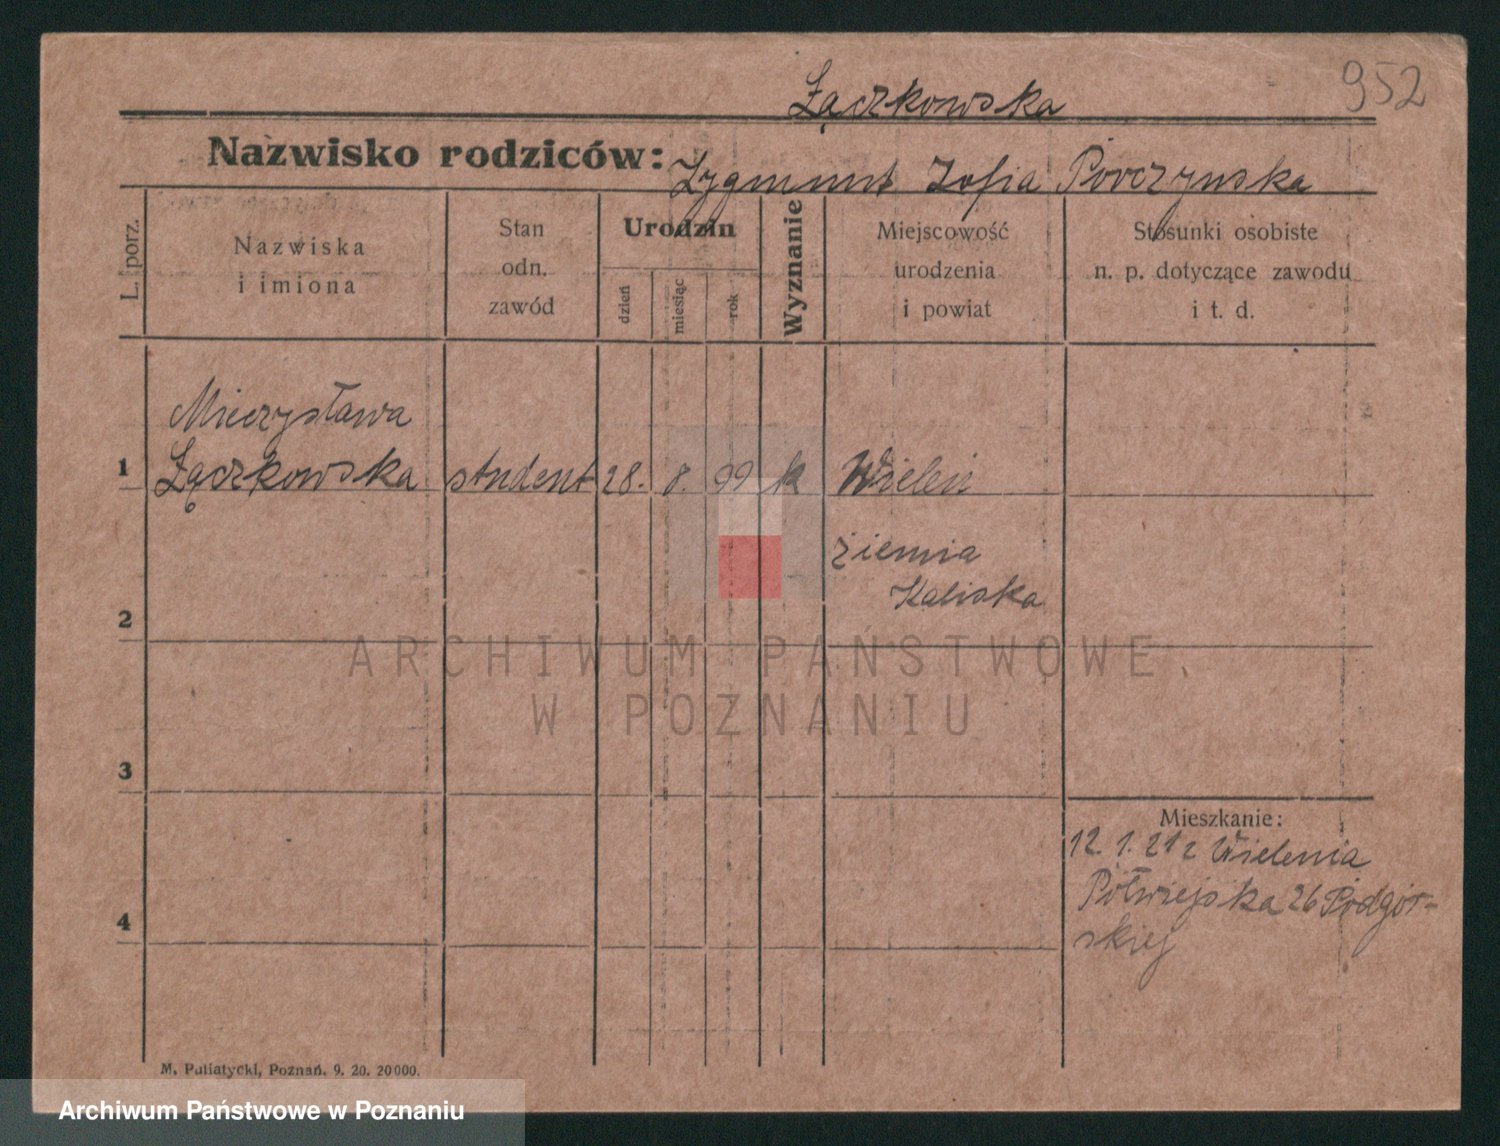 952
Łączkowska
Nazwisko rodziców: Zygmunt Zofia Porczynska
L. porz.
Nazwiska
i imiona
Stan
odn.
zawód
Urodzin
dzień
miesiąc
rok
Wyznanie
Miejscowość
urodzenia
i powiat
Stosunki osobiste
n. p. dotyczące zawodu
i t. d.
Mieczysława
1 Łączkowska student 28. 8. 99 k Wieleń
ziemia
Kaliska
2
3
4
Mieszkanie:
12. 1. 21 z Wielenia
Półwiejska 26 Podgór-
skiej
M. Putiatycki, Poznań. 9. 20. 20000.
ARCHIWUM PAŃSTWOWE
W POZNANIU
Archiwum Państwowe w Poznaniu